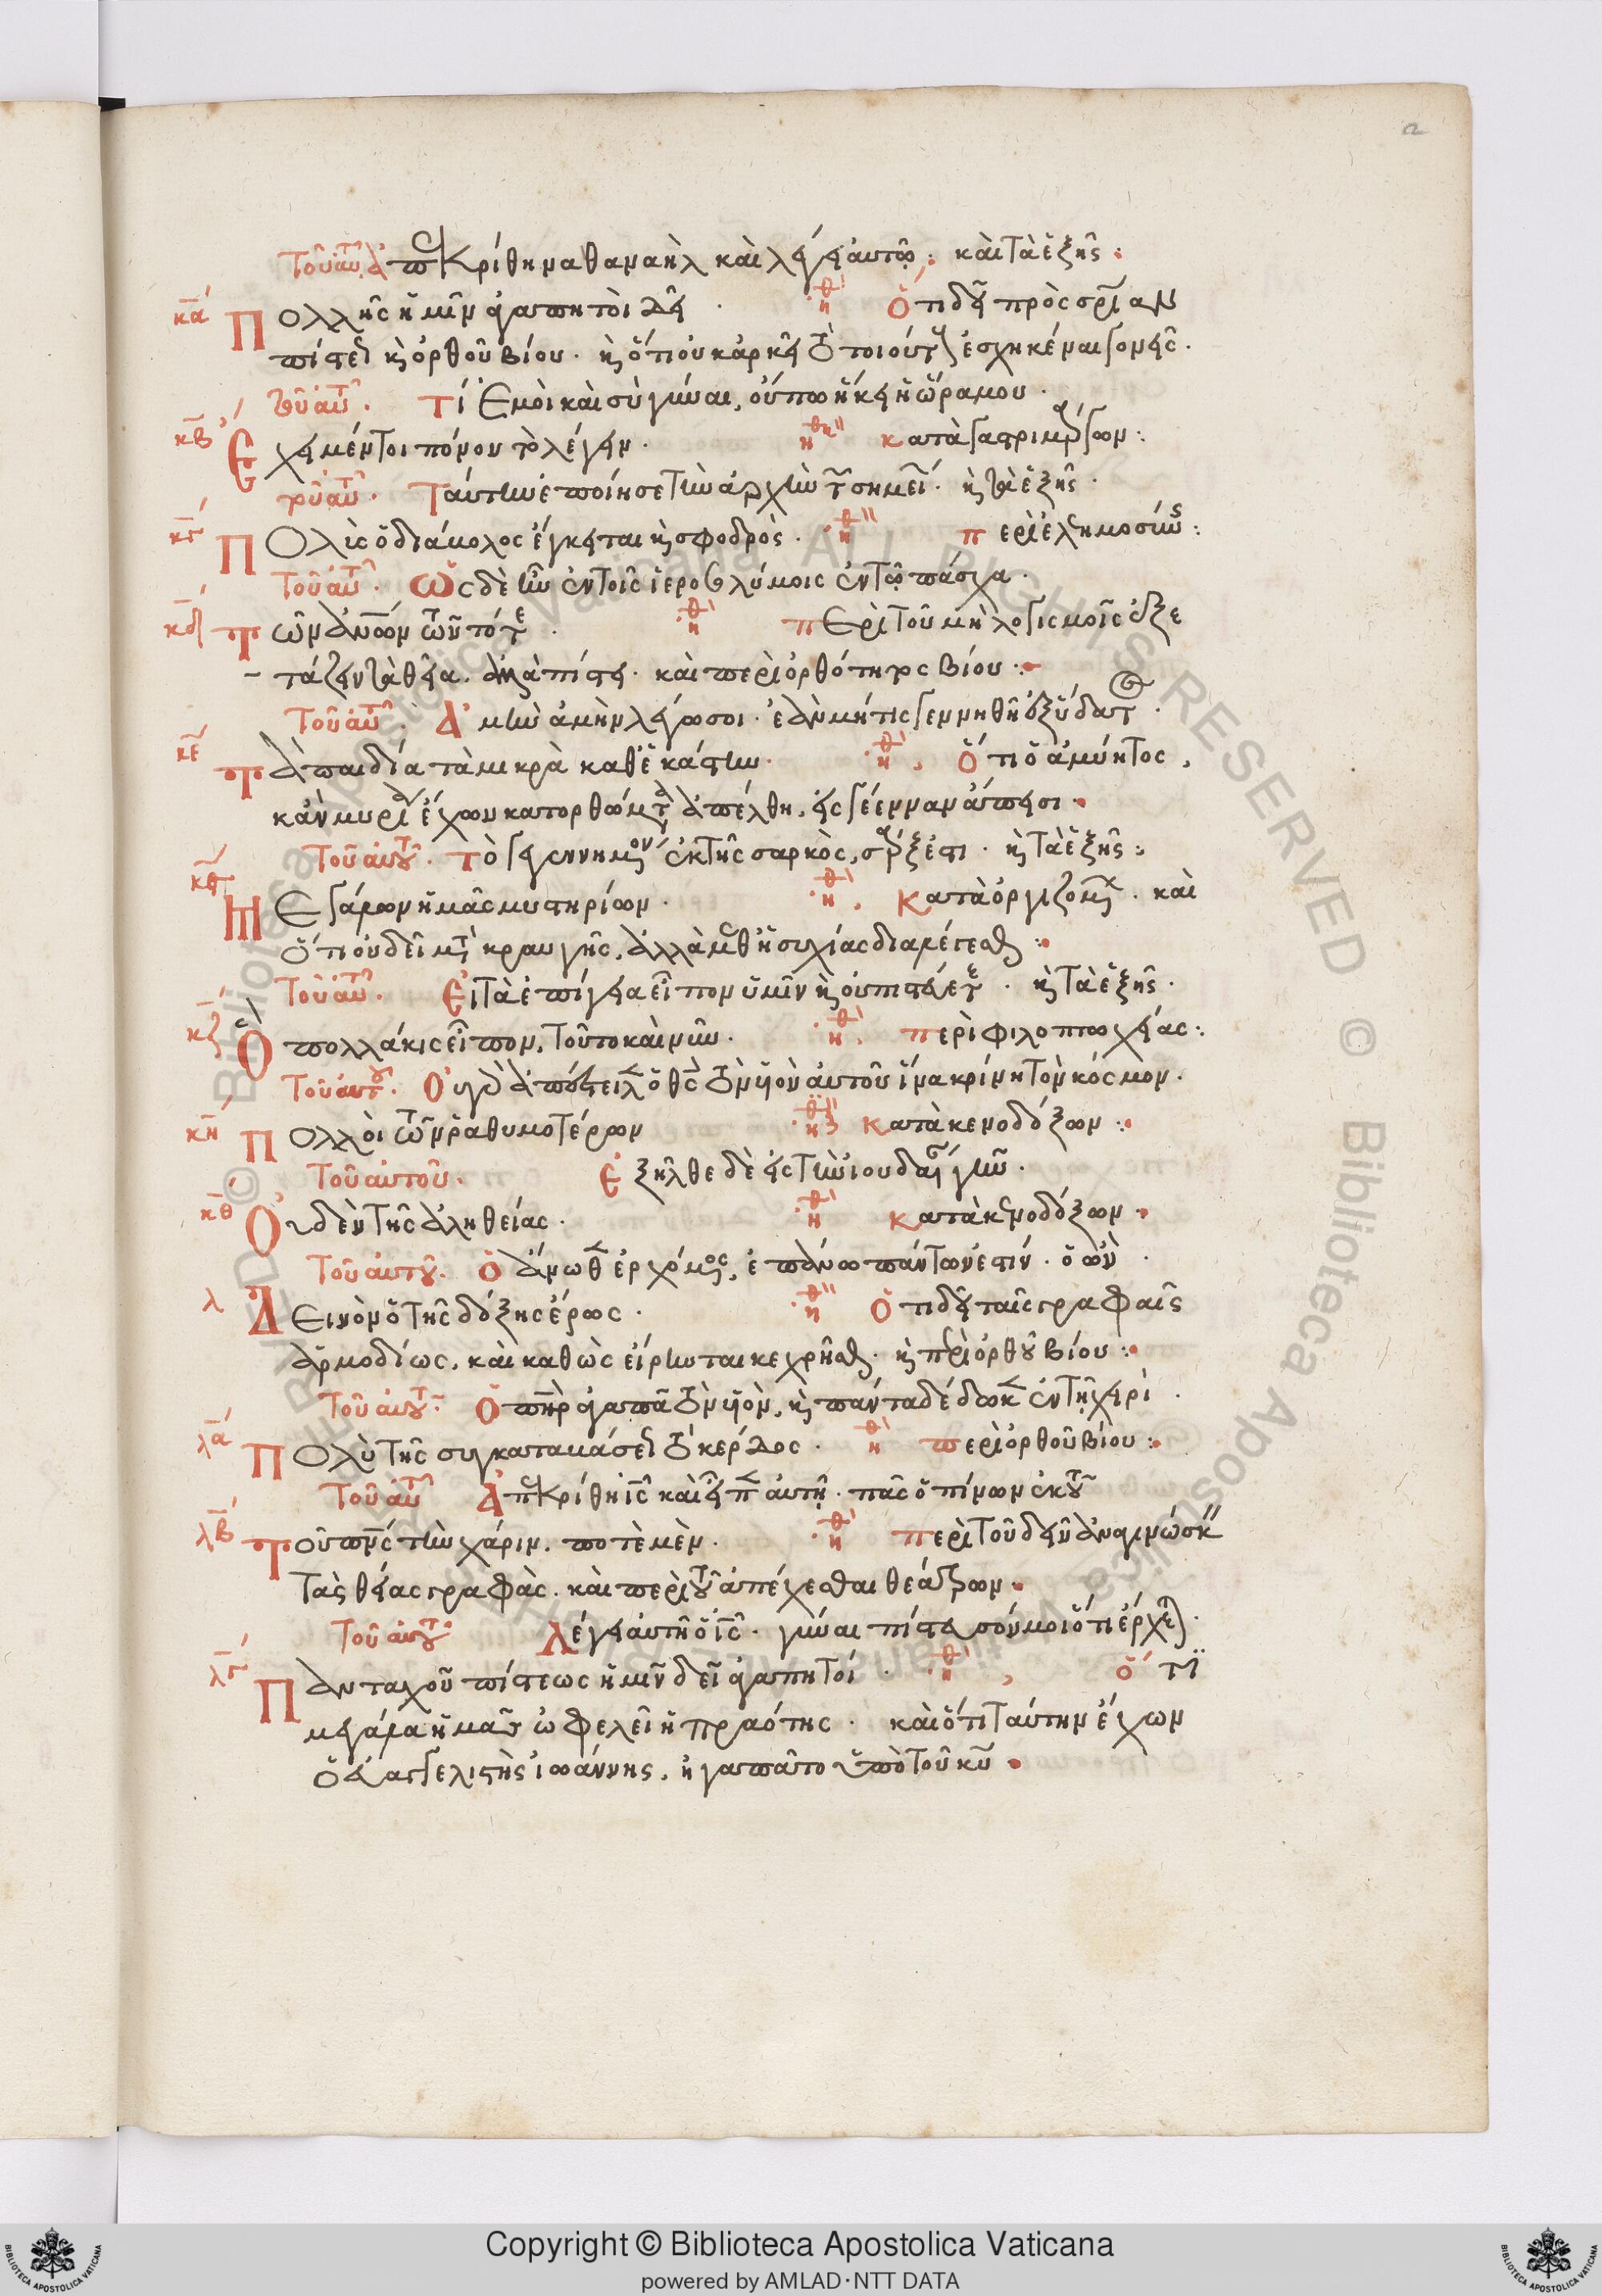 2
Τοῦ αὐτ. ἀπεκρίθη ναθαναὴλ καὶ λέγει αὐτῷ: καὶ τὰ ἑξῆς:
κα Πολλῆς ἡμῖν ἀγαπητοὶ δεῖ · ἠθ Ὅτι δεῖ πρὸς σρίαν
πίστεως κ ὀρθοῦ βίου · κ ὅτι οὐκ ἀρκεῖ τὸ ποιούτους ἐσχηκέναι γονεῖς ·
τοῦ αὐτ. τί ἐμοὶ καὶ σὺ γύναι, οὔπω ἥκει ἡ ὥρα μου ·
κβ Ἔχει μέν τοι πόνον τὸ λέγειν · ἠθ κατὰ γαστριμάργων:
τοῦ αὐτ. Ταύτην ἐποίησε τὴν ἀρχὴν τῶν σημεί · κ τὰ ἑξῆς ·
κγ Πολὺς ὁ διάβολος ἔγκειται κ σφοδρὸς · ἠθ περὶ ἐλεημοσύνης:
τοῦ αὐτ. Ὡς δὲ ἦν ἐν τοῖς ἱεροσολύμοις ἐν τῷ πάσχα ·
κδ Τῶν ἀνων τῶν τότε · ἠθ περὶ τοῦ μὴ λογισμοῖς ἐξε
τάζειν τὰ θεῖα · ἀλλὰ πίστει · καὶ περὶ ὀρθότητος βίου:
Τοῦ αὐτ. Ἀμὴν ἀμὴν λέγω σοι · ἐὰν μή τις γεννηθῇ ἐξ ὕδατος ·
κε Τὰ παιδία τὰ μικρὰ καθ' ἑκάστην · ἠθ, ὅτι ὁ ἀμύητος,
κἂν μυρία ἔχων κατορθώματα ἀπέλθῃ, εἰς γέενναν ἄπεισι ·
Τοῦ αὐτοῦ. τὸ γεγεννημένον ἐκ τῆς σαρκὸς, σάρξ ἐστι · κ τὰ ἑξῆς:
κϛ Μεγάλων ἡμᾶς μυστηρίων · ἠθ. κατὰ ὀργιζομένων · καὶ
ὅτι οὐ δεῖ μετὰ κραυγῆς, ἀλλὰ μεθ' ἡσυχίας διαλέγεσθαι:
Τοῦ αὐτ. Εἰ τὰ ἐπίγεια εἶπον ὑμῖν κ οὐ πιστεύετε · κ τὰ ἑξῆς ·
κζ Ὃ πολλάκις εἶπον, τοῦτο καὶ νῦν · ἠθ. περὶ φιλοπτωχείας:
Τοῦ αὐτοῦ. Οὐ γὰρ ἀπέστειλεν ὁ θς τὸν υἱὸν αὐτοῦ ἵνα κρίνῃ τὸν κόσμον ·
κη Πολλοὶ τῶν ῥαθυμοτέρων ἠθ κατὰ κενοδόξων:
Τοῦ αὐτοῦ. ἐξῆλθε δὲ εἰς τὴν ἰουδαίαν γῆν ·
κθ Οὐδὲν τῆς ἀληθείας · ἠθ κατὰ κενοδόξων ·
Τοῦ αὐτοῦ. ὁ ἄνωθεν ἐρχόμενος, ἐπάνω πάντων ἐστίν · ὁ ὢν ·
λ Δεινὸν ὁ τῆς δόξης ἔρως · ἠθ Ὅτι δεῖ ταῖς γραφαῖς
ἁρμοδίως, καὶ καθὼς εἴρηνται κεχρῆσθαι · κ περὶ ὀρθοῦ βίου:
Τοῦ αὐτοῦ. ὁ πηρ ἀγαπᾷ τὸν υἱὸν, κ πάντα δέδωκεν ἐν τῇ χειρὶ ·
λα Πολὺ τῆς συγκαταβάσεως τὸ κέρδος · ἠθ περὶ ὀρθοῦ βίου:
Τοῦ αὐτ Ἀπεκρίθη ις καὶ εἶπεν αὐτῇ · πᾶς ὁ πίνων ἐκ τοῦ
λβ Τοῦ πνς τὴν χάριν, ποτὲ μὲν · ἠθ περὶ τοῦ δεῖν ἀναγινώσκειν
τὰς θείας γραφὰς · καὶ περὶ τοῦ ἀπέχεσθαι θεάτρων ·
Τοῦ αὐτοῦ λέγει αὐτῇ ὁ ις · γύναι πίστευσόν μοι ὅτι ἔρχεται ·
λγ Πανταχοῦ πίστεως ἡμῖν δεῖ ἀγαπητοί · ἠθ, ὅτι
μεγάλα ἡμᾶς ὠφελεῖ ἡ πραότης · καὶ ὅτι ταύτην ἔχων
ὁ εὐαγγελιστὴς ἰωάννης, ἠγαπᾶτο ὑπὸ τοῦ κυ ·
© Biblioteca Apostolica Vaticana ALL RIGHTS RESERVED
Copyright © Biblioteca Apostolica Vaticana
powered by AMLAD·NTT DATA
BIBLIOTECA APOSTOLICA VATICANA
BIBLIOTECA APOSTOLICA VATICANA